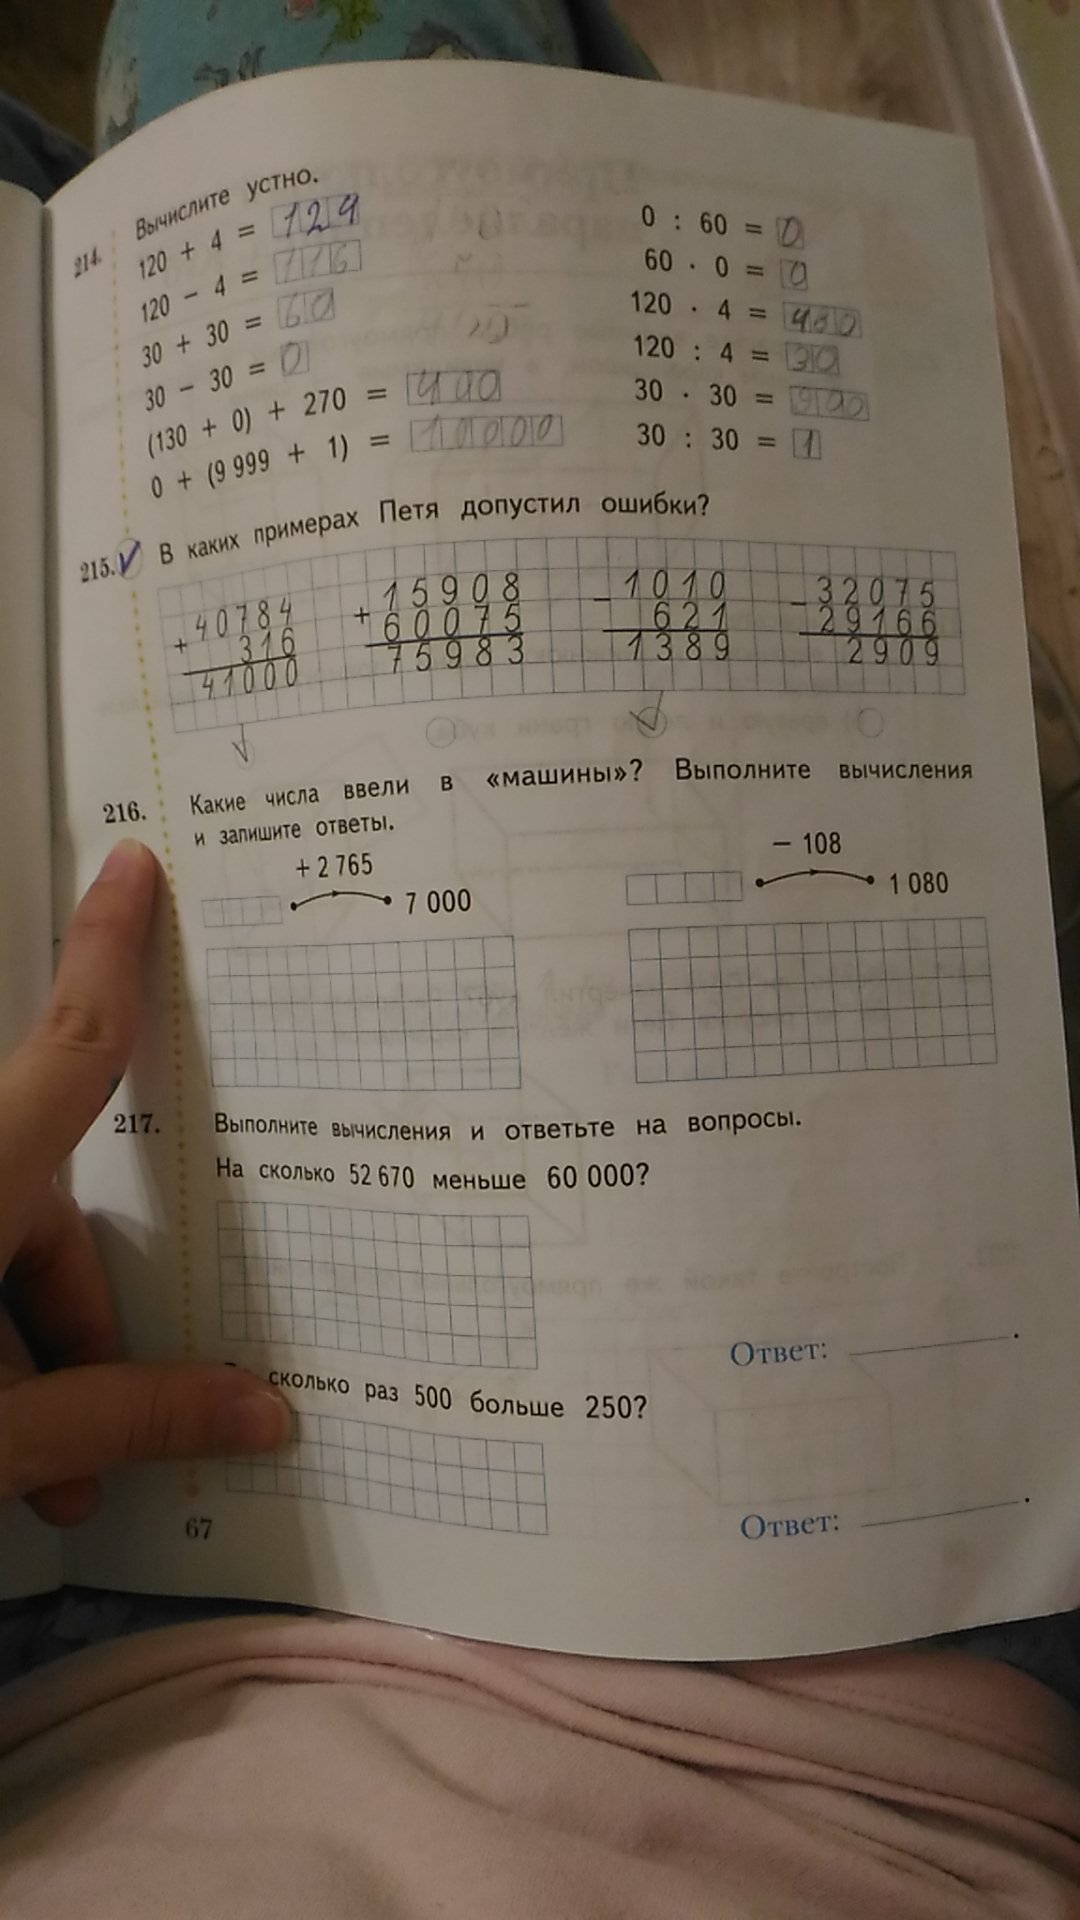 214. Вычислите устно.
120 + 4 = 124
120 − 4 = 116
30 + 30 = 60
30 − 30 = 0
(130 + 0) + 270 = 400
0 + (9 999 + 1) = 10000
0 : 60 = 0
60 · 0 = 0
120 · 4 = 480
120 : 4 = 30
30 · 30 = 900
30 : 30 = 1
215. В каких примерах Петя допустил ошибки?
40784
+ 316
41000
15908
+ 60075
75983
1010
− 621
1389
32075
− 29166
2909
216. Какие числа ввели в «машины»? Выполните вычисления
и запишите ответы.
+ 2 765
7 000
− 108
1 080
217. Выполните вычисления и ответьте на вопросы.
На сколько 52 670 меньше 60 000?
Ответ:
сколько раз 500 больше 250?
Ответ:
67